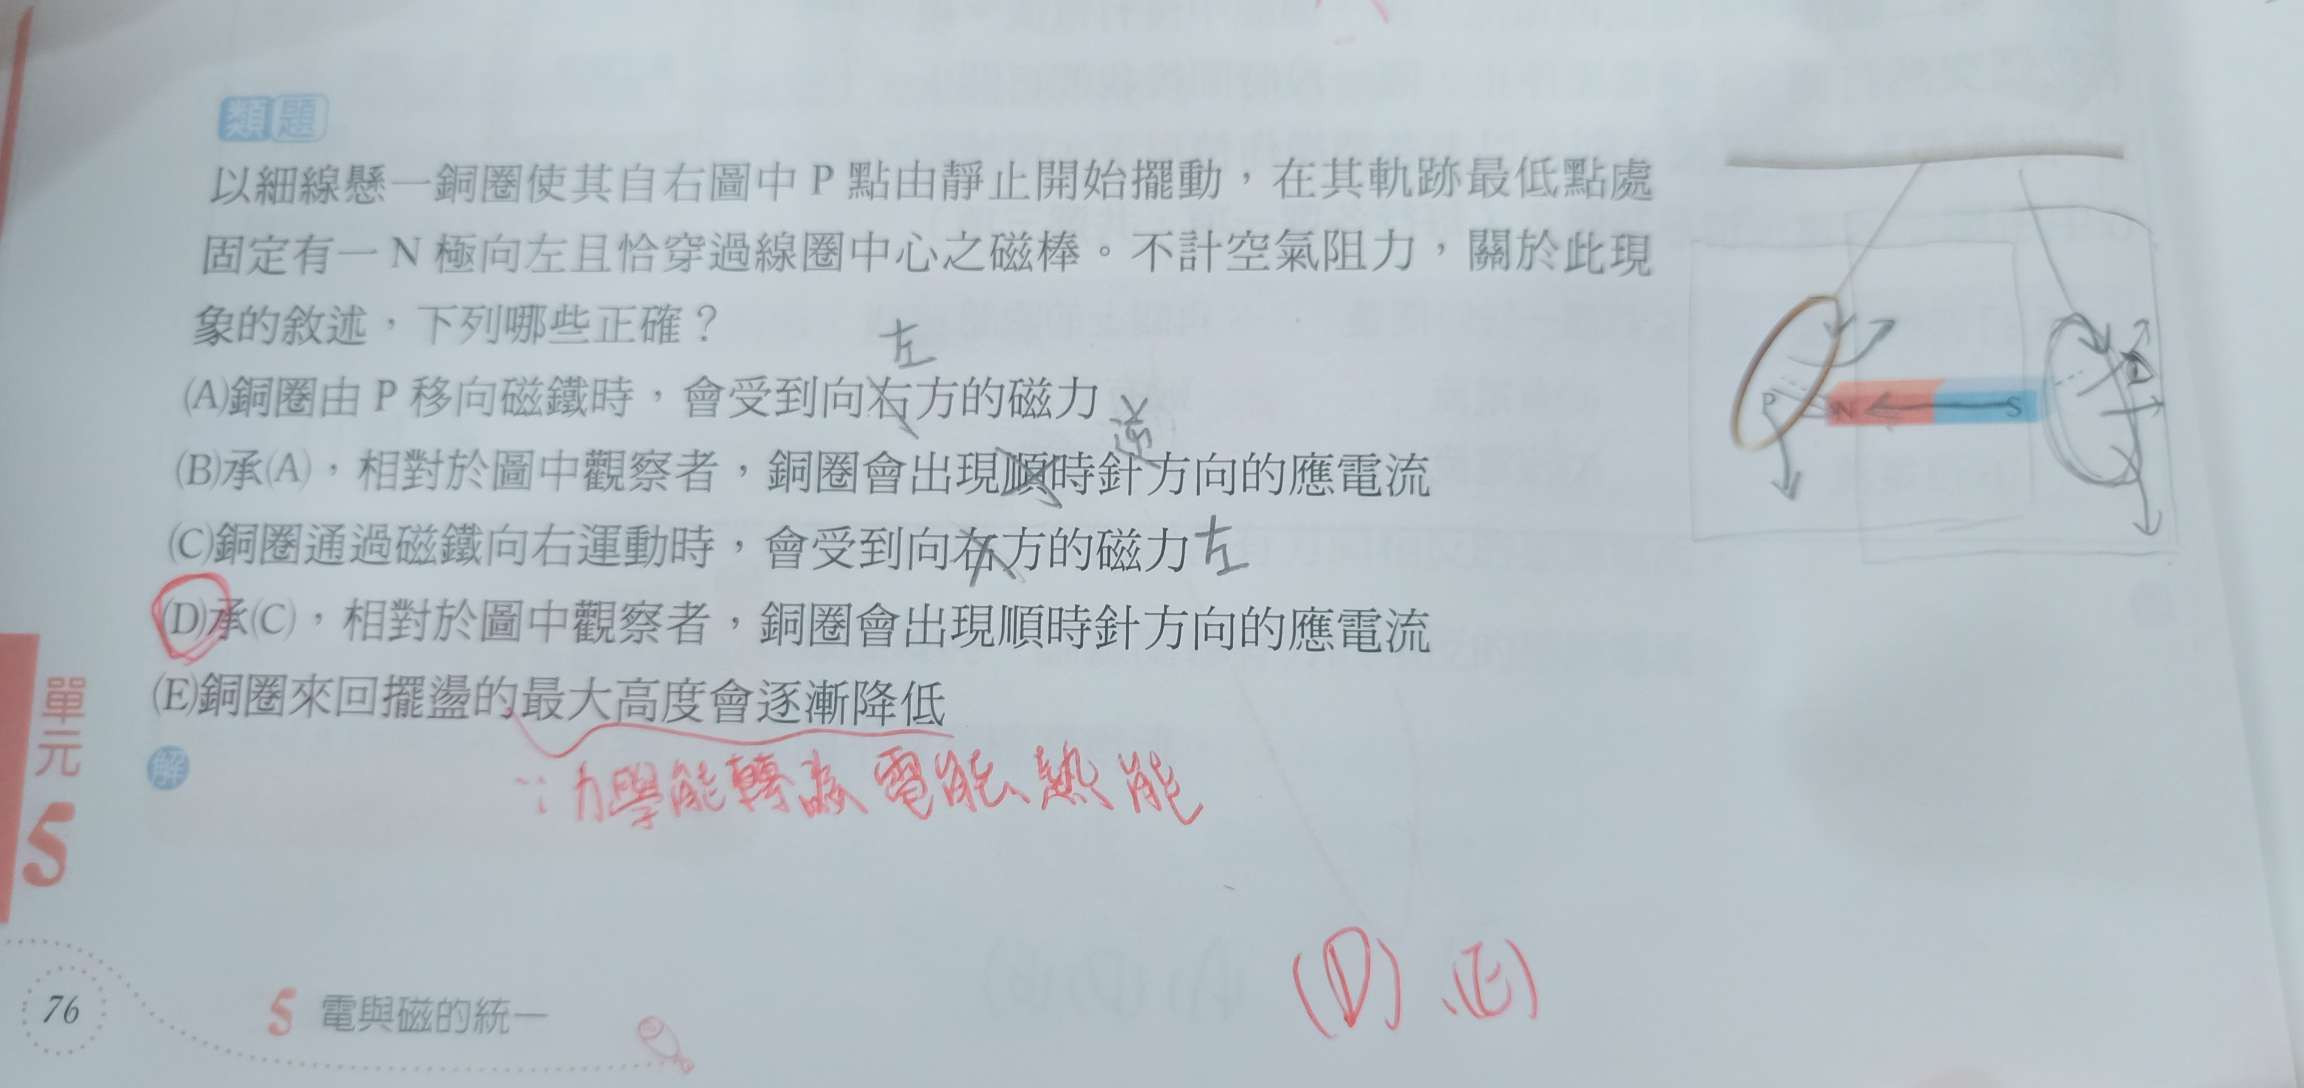 類題
以細線懸一銅圈使其自右圖中 P 點由靜止開始擺動，在其軌跡最低點處
固定有一 N 極向左且恰穿過線圈中心之磁棒。不計空氣阻力，關於此現
象的敘述，下列哪些正確？
左
(A)銅圈由 P 移向磁鐵時，會受到向右方的磁力
逆
(B)承(A)，相對於圖中觀察者，銅圈會出現順時針方向的應電流
(C)銅圈通過磁鐵向右運動時，會受到向右方的磁力左
(D)承(C)，相對於圖中觀察者，銅圈會出現順時針方向的應電流
(E)銅圈來回擺盪的最大高度會逐漸降低
解
∵力學能轉換電能、熱能
P N S
(D)、(E)
單元
5
76
5 電與磁的統一